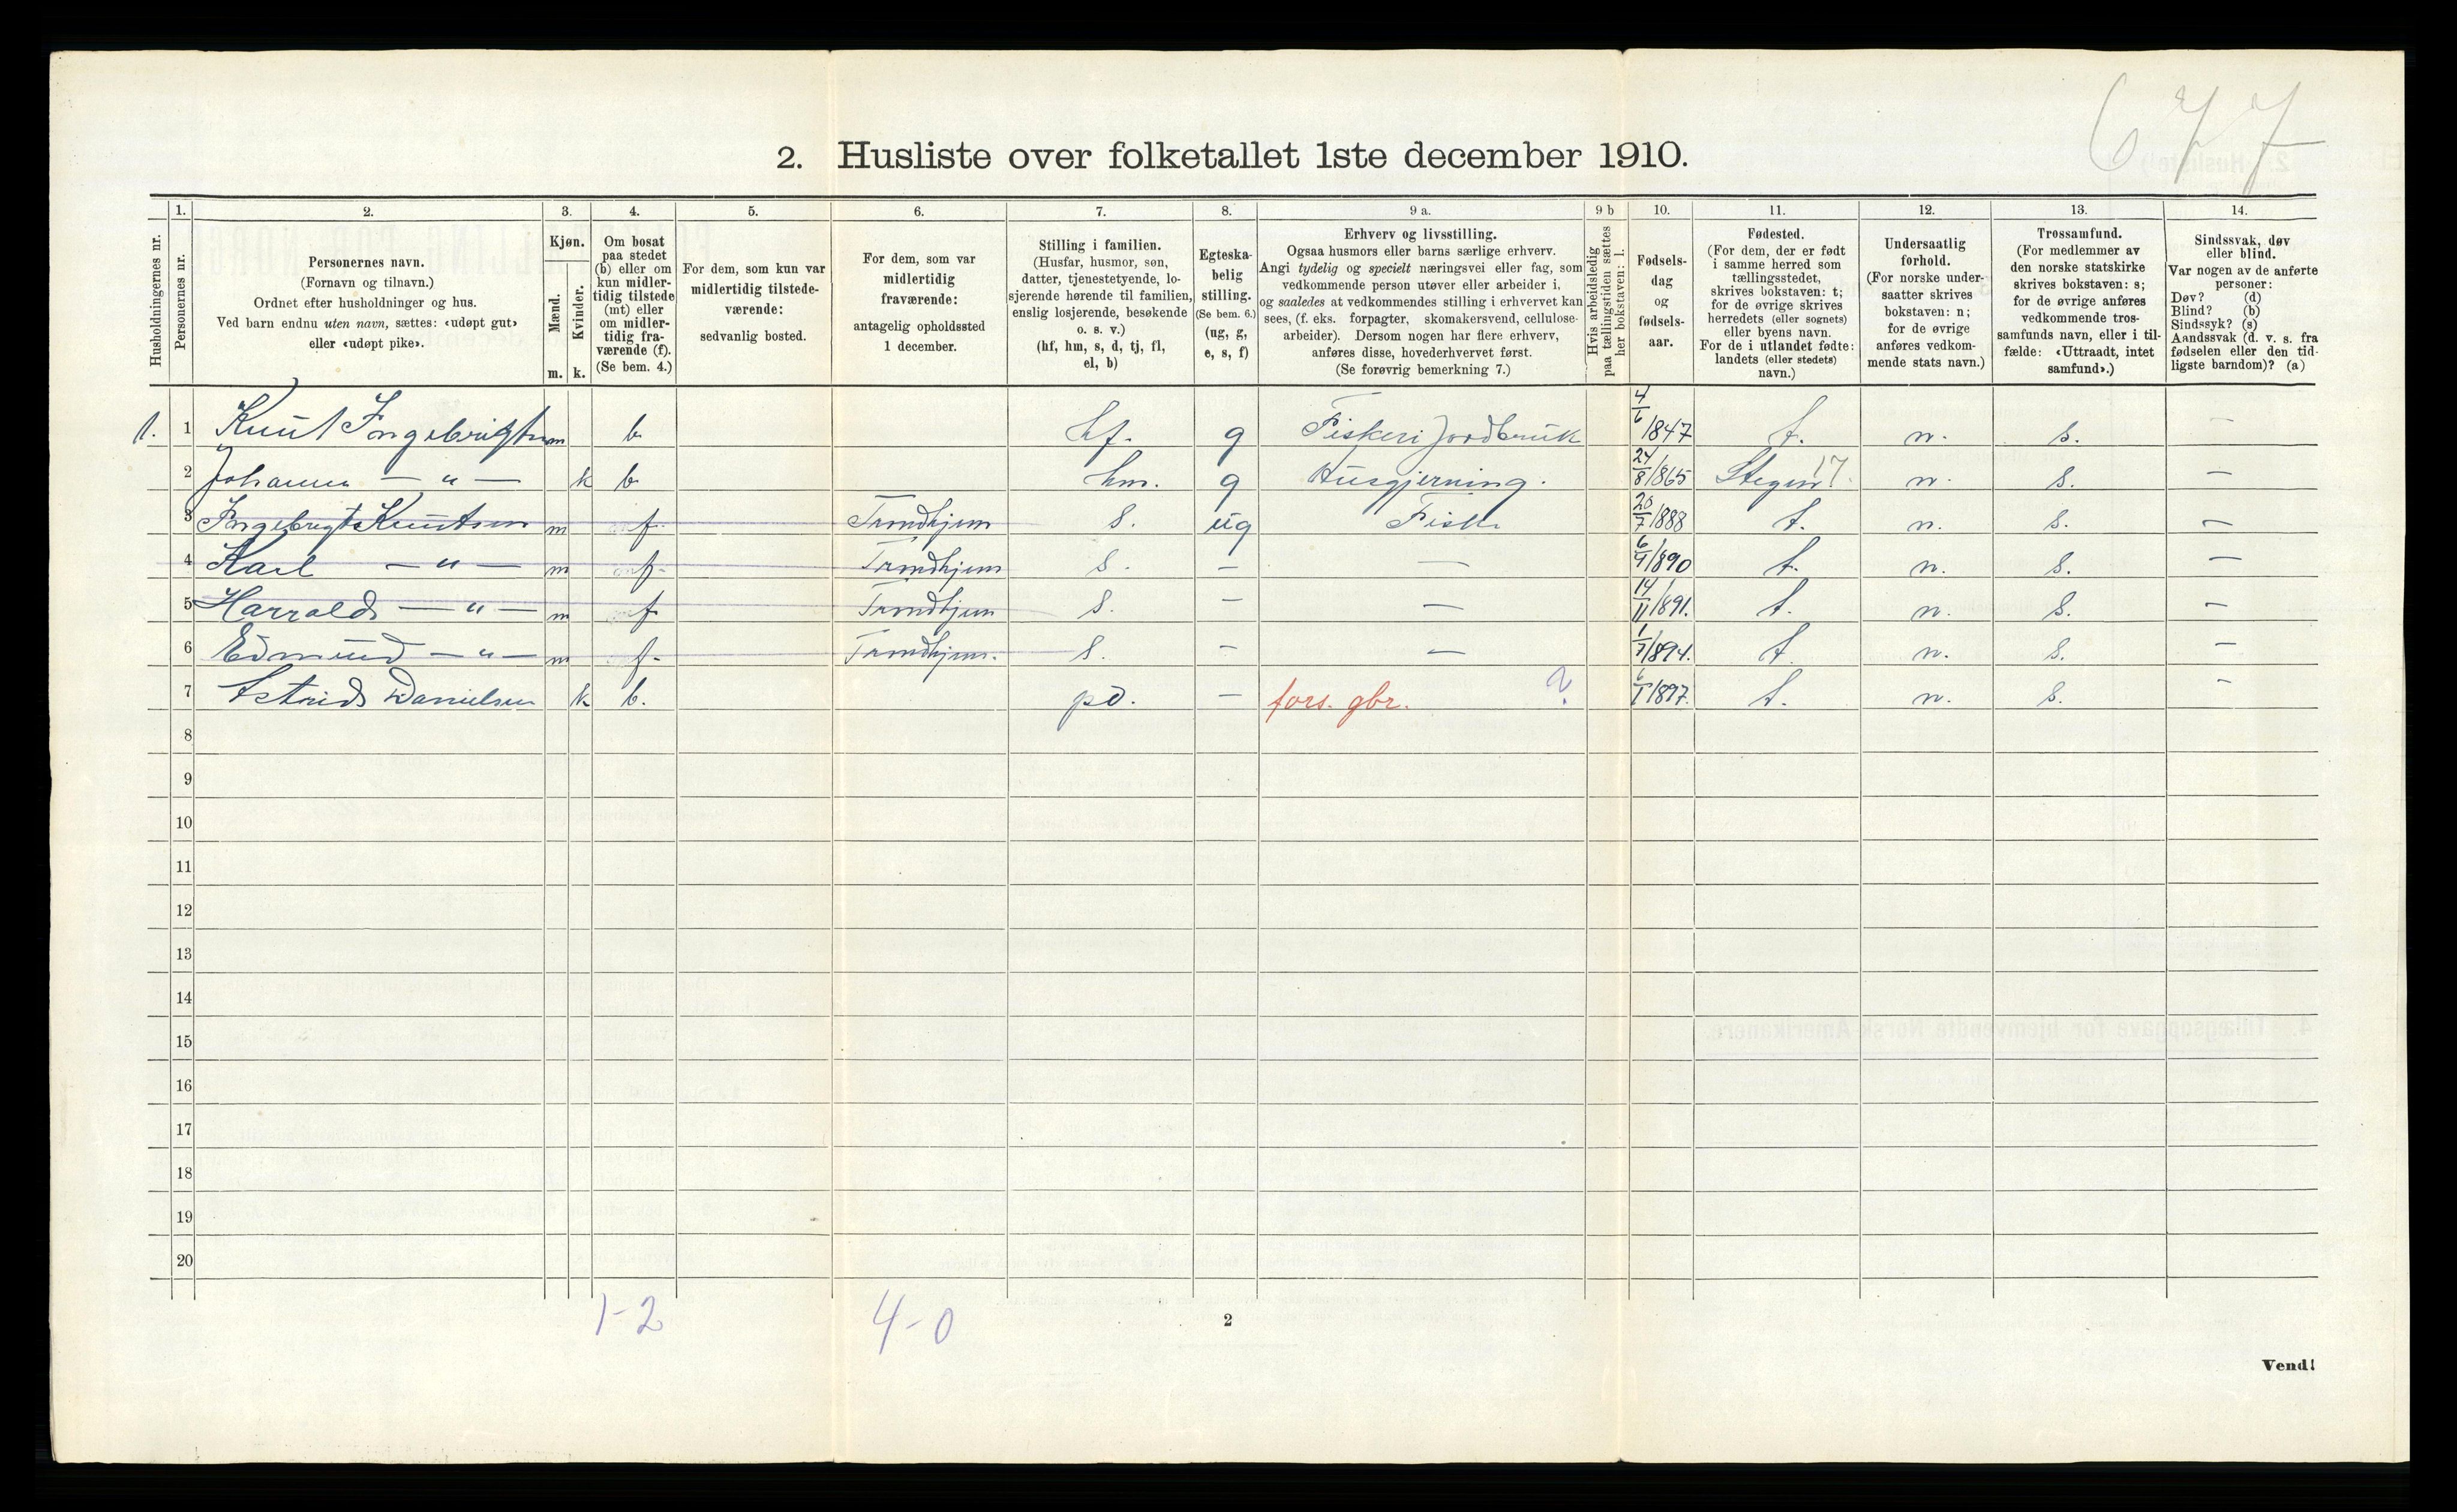 677
2. Husliste over folketallet 1ste december 1910.
Husholdningernes nr.
1.
Personernes nr.
2.
Personernes navn.
(Fornavn og tilnavn.)
Ordnet efter husholdninger og hus.
Ved barn endnu uten navn, sættes: «udøpt gut»
eller «udøpt pike».
3.
Kjøn.
Mænd.
Kvinder.
m. k.
4.
Om bosat
paa stedet
(b) eller om
kun midler-
tidig tilstede
(mt) eller
om midler-
tidig fra-
værende (f).
(Se bem. 4.)
5.
For dem, som kun var
midlertidig tilstede-
værende:
sedvanlig bosted.
6.
For dem, som var
midlertidig
fraværende:
antagelig opholdssted
1 december.
7.
Stilling i familien.
(Husfar, husmor, søn,
datter, tjenestetyende, lo-
sjerende hørende til familien,
enslig losjerende, besøkende
o. s. v.)
(hf, hm, s, d, tj, fl,
el, b)
8.
Egteska-
belig
stilling.
(Se bem. 6.)
(ug, g,
e, s, f)
9 a.
Erhverv og livsstilling.
Ogsaa husmors eller barns særlige erhverv.
Angi tydelig og specielt næringsvei eller fag, som
vedkommende person utøver eller arbeider i,
og saaledes at vedkommendes stilling i erhvervet kan
sees, (f. eks. forpagter, skomakersvend, cellulose-
arbeider). Dersom nogen har flere erhverv,
anføres disse, hovederhvervet først.
(Se forøvrig bemerkning 7.)
9 b
Hvis arbeidsledig
paa tællingstiden sættes
her bokstaven: l.
10.
Fødsels-
dag
og
fødsels-
aar.
11.
Fødested.
(For dem, der er født
i samme herred som
tællingsstedet,
skrives bokstaven: t;
for de øvrige skrives
herredets (eller sognets)
eller byens navn.
For de i utlandet fødte:
landets (eller stedets)
navn.)
12.
Undersaatlig
forhold.
(For norske under-
saatter skrives
bokstaven: n;
for de øvrige
anføres vedkom-
mende stats navn.)
13.
Trossamfund.
(For medlemmer av
den norske statskirke
skrives bokstaven: s;
for de øvrige anføres
vedkommende tros-
samfunds navn, eller i til-
fælde: «Uttraadt, intet
samfund».)
14.
Sindssvak, døv
eller blind.
Var nogen av de anførte
personer:
Døv? (d)
Blind? (b)
Sindssyk? (s)
Aandssvak (d. v. s. fra
fødselen eller den tid-
ligste barndom)? (a)
1. 1 Knut Ingebrigtsen m b hf. g Fiskeri Jordbruk 4/6/1847 t. n. s. —
2 Johanna — " — k b hm. g Husgjerning. 24/8/1865 Stegen 17 n. s. —
3 Ingebrigt Knutsen m f Trondhjem s. ug Fisker 20/7/1888 t. n. s. —
4 Karl — " — m f Trondhjem s. — — 6/4/1890 t. n. s. —
5 Harrald — " — m f Trondhjem s. — — 14/11/1891. t. n. s. —
6 Edmund — " — m f Trondhjem. s. — — 1/7/1894. t. n. s. —
7 Astrid Danielsen k b. pd. — fors. gbr. ? 6/1/1897. t. n. s. —
8
9
10
11
12
13
14
15
16
17
18
19
20
1-2 4-0
2
Vend!